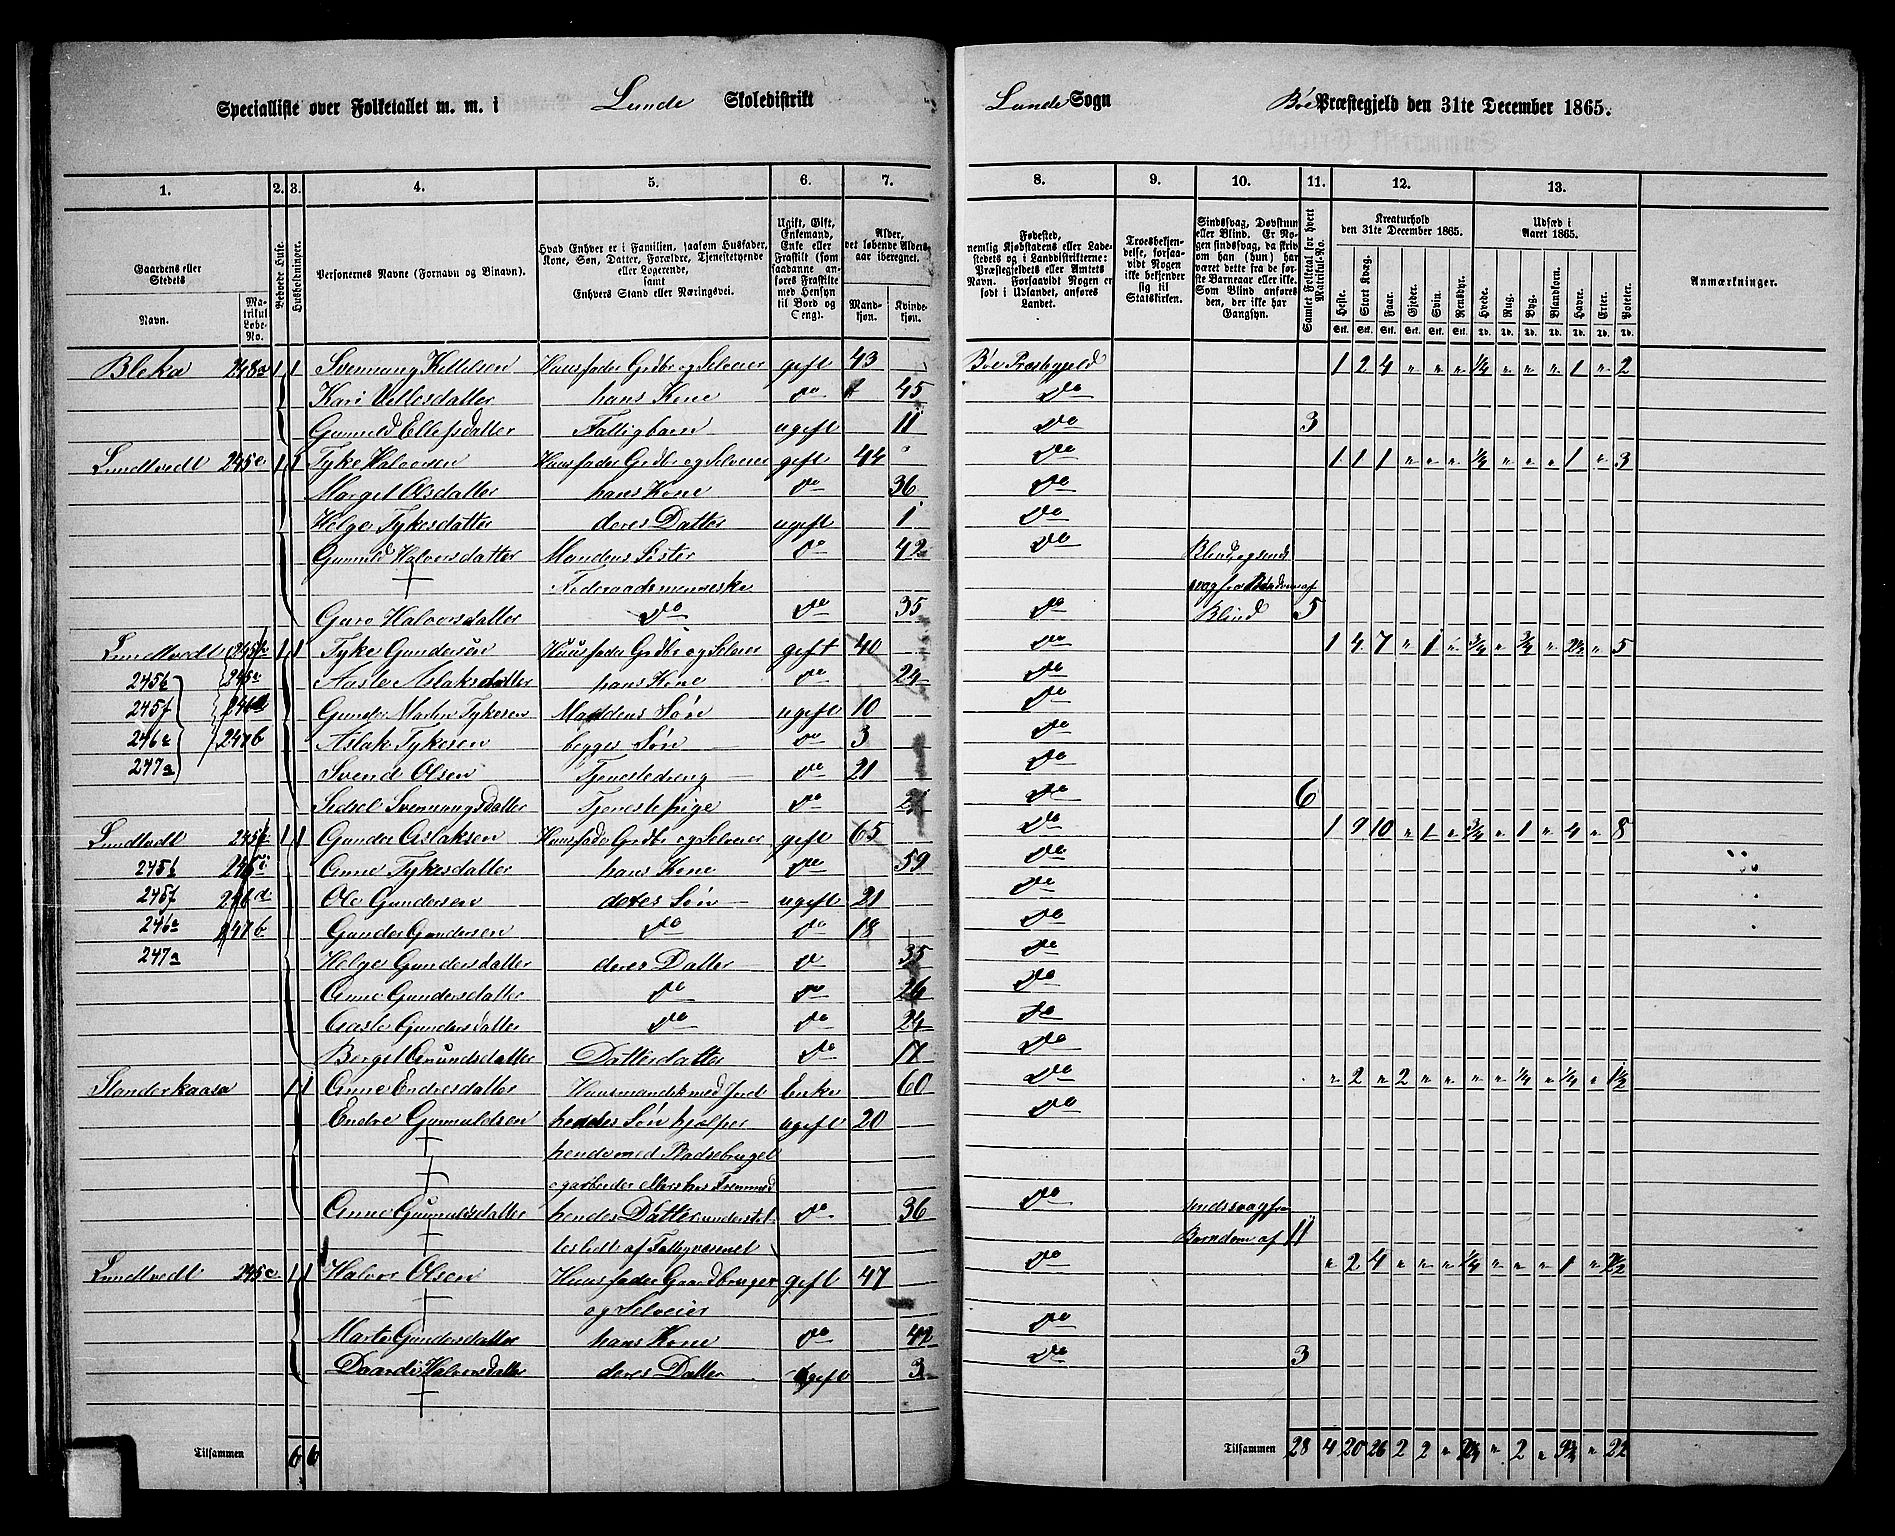 Specialliste over Folketallet m. m. i Lunde Skoledistrikt Lunde Sogn Bøe Præstegjeld den 31te December 1865.
1. 2. 3. 4. 5. 6. 7. 8. 9. 10. 11. 12. 13.
Gaardens eller Stedets
Navn.
Matrikul Løbe-No.
Beboede Huse.
Husholdninger.
Personernes Navne (Fornavn og Binavn).
Hvad Enhver er i Familien, saasom Husfader, Kone, Søn, Datter, Forældre, Tjenestetyende eller Logerende, samt Enhvers Stand eller Næringsvei.
Ugift, Gift, Enkemand, Enke eller Fraskilt (som saadanne anføres Fraskilte med Hensyn til Bord og Seng).
Alder, det løbende Alders-aar iberegnet.
Mandkjøn.
Kvindekjøn.
Fødested, nemlig Kjøbstadens eller Ladestedets og i Landdistrikterne: Præstegjeldets eller Amtets Navn. Forsaavidt Nogen er født i Udlandet, anføres Landet.
Troesbekjendelse, forsaavidt Nogen ikke bekjender sig til Statskirken.
Sindssvag, Døvstum eller Blind. Er Nogen sindssvag, da skriv om han (hun) har været dette fra de første Barneaar eller ikke. Som Blind anføres den, der ikke har Gangsyn.
Samlet Folketal for hvert Matrikul-No.
Kreaturhold den 31te December 1865.
Heste. Stort Kvæg. Faar. Gjeder. Svin. Rensdyr.
Udsæd i Aaret 1865.
Hvede. Rug. Byg. Blandkorn. Havre. Erter. Poteter.
Anmærkninger.
Bleka 248a 1 1 Svennung Kittelsen Huusfader Grdbr og Selveier gift 43 Bøe Præstegjeld 1 2 4 " " " ¼ " " " 1 " 2
Kari Vetlesdatter hans Kone do 45 do
Gunnild Ellefsdatter Fattigbarn ugift 11 do 3
Lundtvedt 245c 1 1 Tyke Halvorsen Huusfader Grdbr og Selveier gift 44 do 1 1 1 " " " ¼ " " " 1 " 3
Margit Olsdatter hans Kone do 36 do
Helge Tykesdatter deres Datter ugift 1 do
Gunnild Halvorsdatter Mandens Søster do 42 do
Føderaadsmenneske
Guro Halvorsdatter do do 35 do Blind 5
Lundtvedt 1 1 Tyke Gundersen Huusfader Grdbr og Selveier gift 40 do 1 4 7 " 1 " ¾ " ¾ " 2½ " 5
245b Aaste Aslaksdatter hans Kone do 24 do
245f Gunder Martin Tykesen Mandens Søn ugift 10 do
246a 247b Aslak Tykesen begges Søn do 3 do
247a Svend Olsen Tjenestedreng do 21 do
Sidsel Svennungsdatter Tjenestepige do do 6
Lundtvedt 1 1 Gunder Aslaksen Huusfader Grdbr og Selveier gift 65 do 1 9 10 " 1 " ¾ " 1 " 4 " 8
245b Anne Tykesdatter hans Kone do 59 do
245f Ole Gundersen deres Søn ugift 21 do
246a 247b Gunder Gundersen do do 18 do
247a Helge Gundersdatter deres Datter do 35 do
Anne Gundersdatter do do 26 do
Aaste Gundersdatter do do 24 do
Bergit Datterdatter do 17 do
1 1 Anne Endresdatter Huusmandsk med Jord Enke 60 do " 2 " 2 " " " " ¼ " ¼ " 1½
Endre Gunnuldsen hendes Søn hjælper ugift 20 do
hende med Pladsebruget
Anne Gunnuldsdatter hendes Datter understøt- do 36 do Sindssvag fra
tes lidt af Fattigvæsenet Barndom af 11
Lundtvedt 245c 1 1 Halvor Olsen Huusfader Gaardbruger gift 47 do " 2 4 " " " ¼ " " " 1 " 2½
og Selveier
Marte Gundersdatter hans Kone do 42 do
Daardi Halvorsdatter deres Datter ugift 3 do 3
Tilsammen 6 6 Tilsammen 28 4 20 26 2 2 " 2¼ " 2 " 9¾ " 22